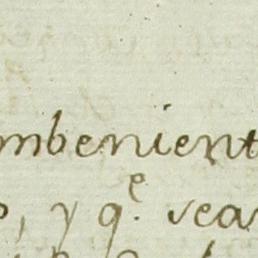 mbenient
o, y q.e sea